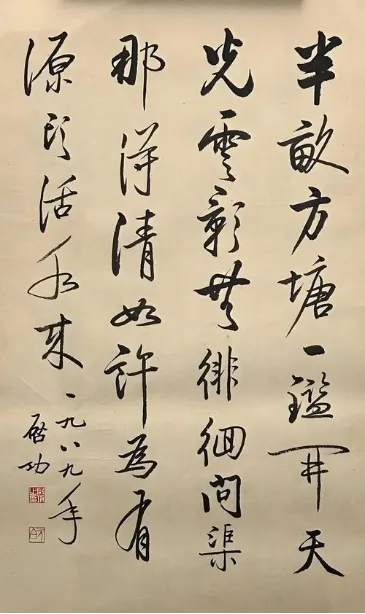 半畝方塘一鑑開天
光雲影共徘徊問渠
那得清如許為有
源頭活水來
一九八九年
啓功